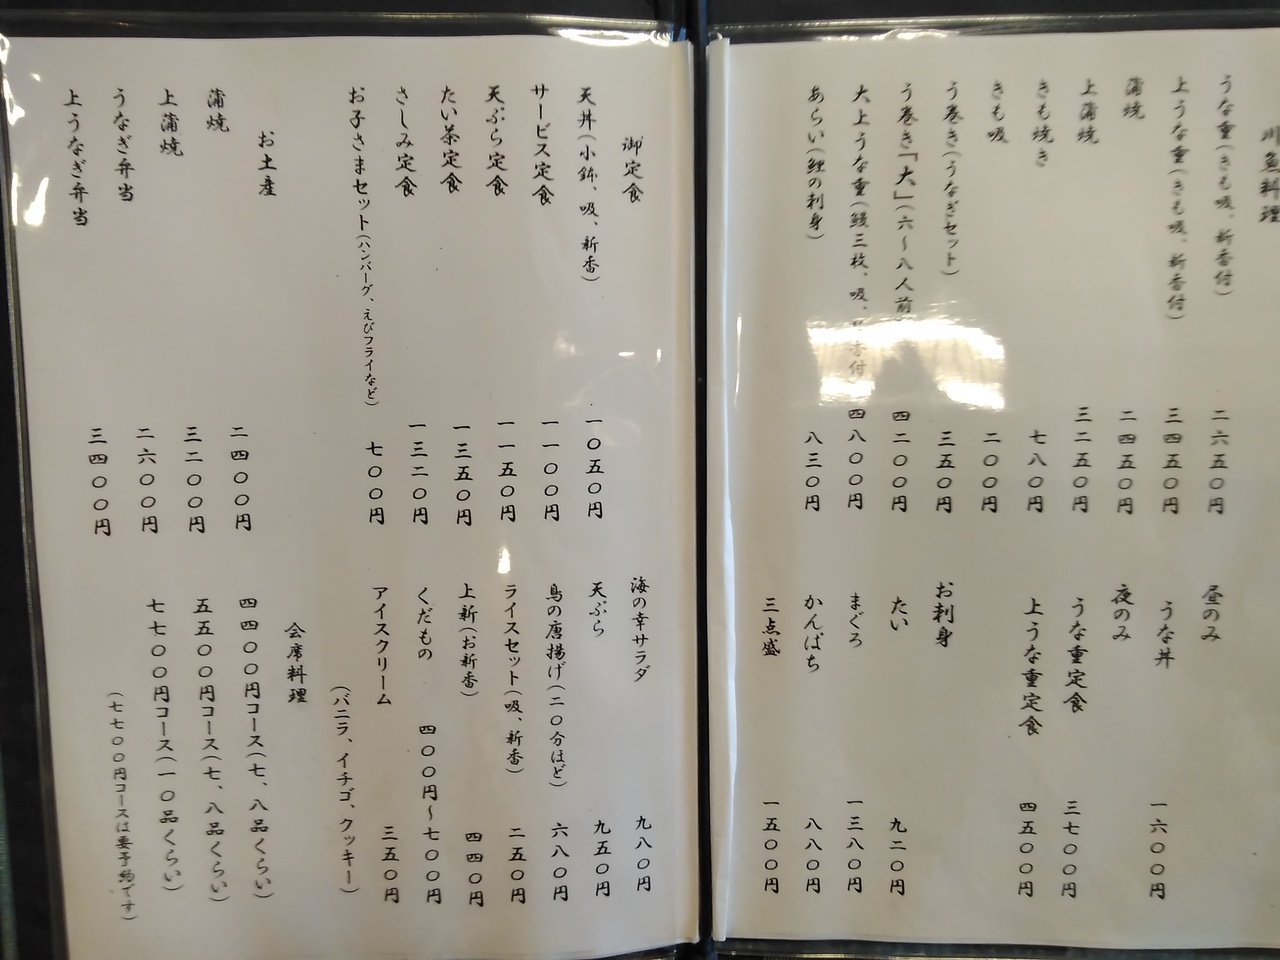 川魚料理
うな重(きも吸、新香付) 二六五〇円
上うな重(きも吸、新香付) 三四五〇円
蒲焼 二四五〇円
上蒲焼 三二五〇円
きも焼き 七八〇円
きも吸 二〇〇円
う巻き(うなぎセット) 三五〇円
う巻き「大」(六～八人前 四二〇〇円
大上うな重(鰻三枚、吸、香付) 四八〇〇円
あらい(鯉の刺身) 八三〇円
昼のみ
うな丼 一六〇〇円
夜のみ
うな重定食 三七〇〇円
上うな重定食 四五〇〇円
お刺身
たい 九二〇円
まぐろ 一三八〇円
かんぱち 八八〇円
三点盛 一五〇〇円
御定食
天丼(小鉢、吸、新香) 一〇五〇円
サービス定食 一一〇〇円
天ぷら定食 一一五〇円
たい茶定食 一三五〇円
さしみ定食 一三二〇円
お子さまセット(ハンバーグ、えびフライなど) 七〇〇円
お土産
蒲焼 二四〇〇円
上蒲焼 三二〇〇円
うなぎ弁当 二六〇〇円
上うなぎ弁当 三四〇〇円
海の幸サラダ 九八〇円
天ぷら 九五〇円
鳥の唐揚げ(二〇分ほど) 六八〇円
ライスセット(吸、新香) 二五〇円
上新(お新香) 四四〇円
くだもの 四〇〇円～七〇〇円
アイスクリーム 三五〇円
(バニラ、イチゴ、クッキー)
会席料理
四四〇〇円コース(七、八品くらい)
五五〇〇円コース(七、八品くらい)
七七〇〇円コース(一〇品くらい)
(七七〇〇円コースは要予約です)